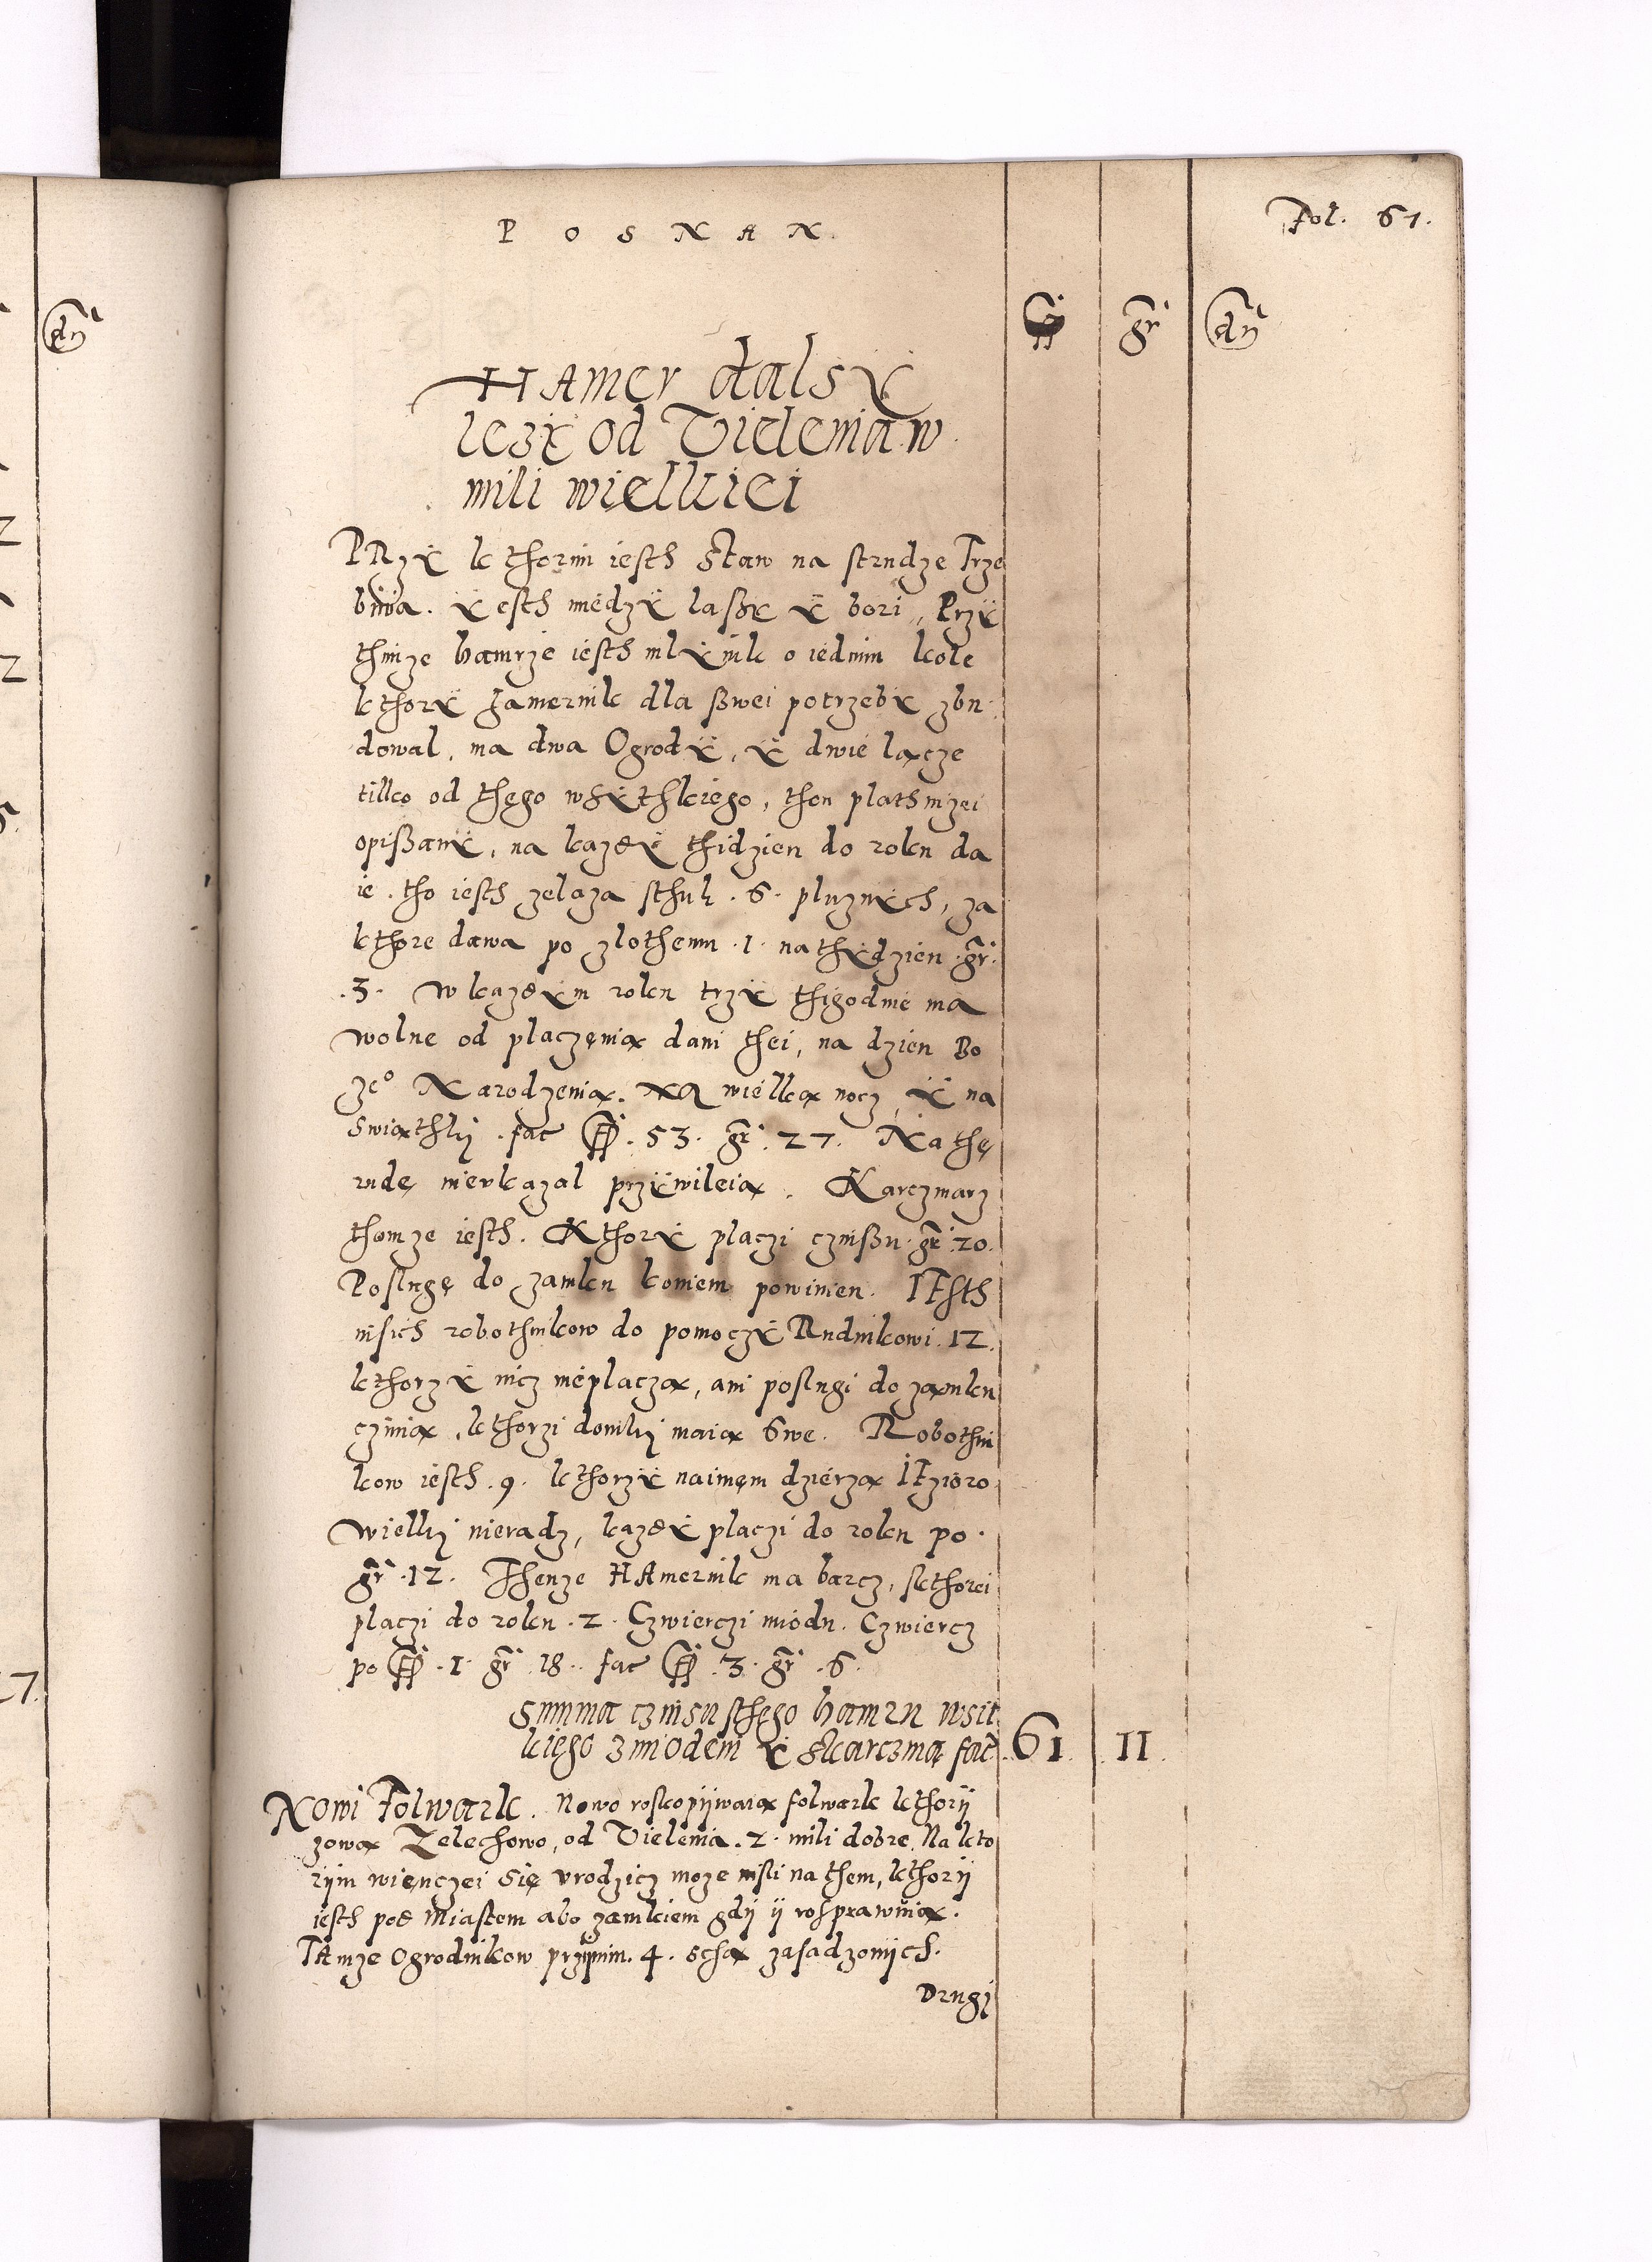 POSNAN.
Fol. 61.
fl gr dn
HAmer dalsÿ
lezÿ od Vielenia w
mili wielkiei
PRzÿ kthorim iesth Staw na strudze Trze
bnia. ÿesth miedzÿ lassÿ ÿ bori, Przÿ
thimze hamrze iesth mlÿnik o iednim kole
kthorÿ Hamernik dla sswei potrzebÿ zbu
dowal, ma dwa Ogrodÿ, ÿ dwie lącze
tilko od thego wsÿthkiego, thon plath nizei
opissanÿ, na kazdÿ thidzien do roku da
ie. tho iesth zelaza sthuk .6. pluznÿch, za
kthore dawa po zlothemu .1. na thÿdzien gr.
.3. W kazdÿm roku trzÿ thigodnie ma
wolne od placzęnia dani thei, na dzien Bo
zeº Narodzenia. Na wielką nocz, ÿ na
swiąthki .fac fl .53. gr. 27. Na thę
rudę nieukazal przÿwileią. Karczmarz
thamze iesth. Kthorÿ placzi czinssu gr. 20.
Poslugę do zamku koniem powinien. IEsth
insich robothnikow do pomoczÿ Rudnikowi .12.
kthorzÿ nicz nieplaczą, ani poslugi do zamku
czinią, kthorzi domki maią swe. Robothni
kow iesth .9. kthorzÿ naimem dzierzą IEzioro
wielki nieradz, kazdÿ placzi do roku po.
gr .12. Thenze HAmernik ma barcz, skthorei
placzi do roku .2. Czwierczi miodu. Czwiercz
po fl .1. gr 18. fac fl .3. gr .6.
Summa czinsu sthego hamru wsit
kiego z miodem ÿ skarczmą fac 61. 11.
Nowi Folwark. Nowo roskopÿwaią folwark kthorÿ
zową Zelechowo, od Vielenia .2. mili dobre. Na kto
rÿm wienczei się urodzicz moze nisli na them, kthorÿ
iesth pod Miastem abo zamkiem gdÿ ÿ rosprawnią.
TAmze Ogrodnikow przÿnim. 4. schą zasadzonÿch.
Drugi